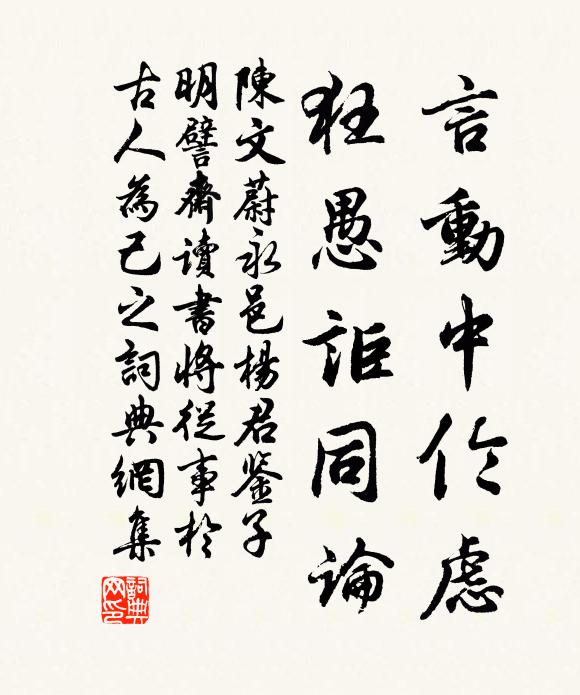 言動中伦慮
狂愚詎同論
陳文蔚永邑楊君鉴子
明譬齋讀書將從事於
古人為己之詞典網集
詞典
网印